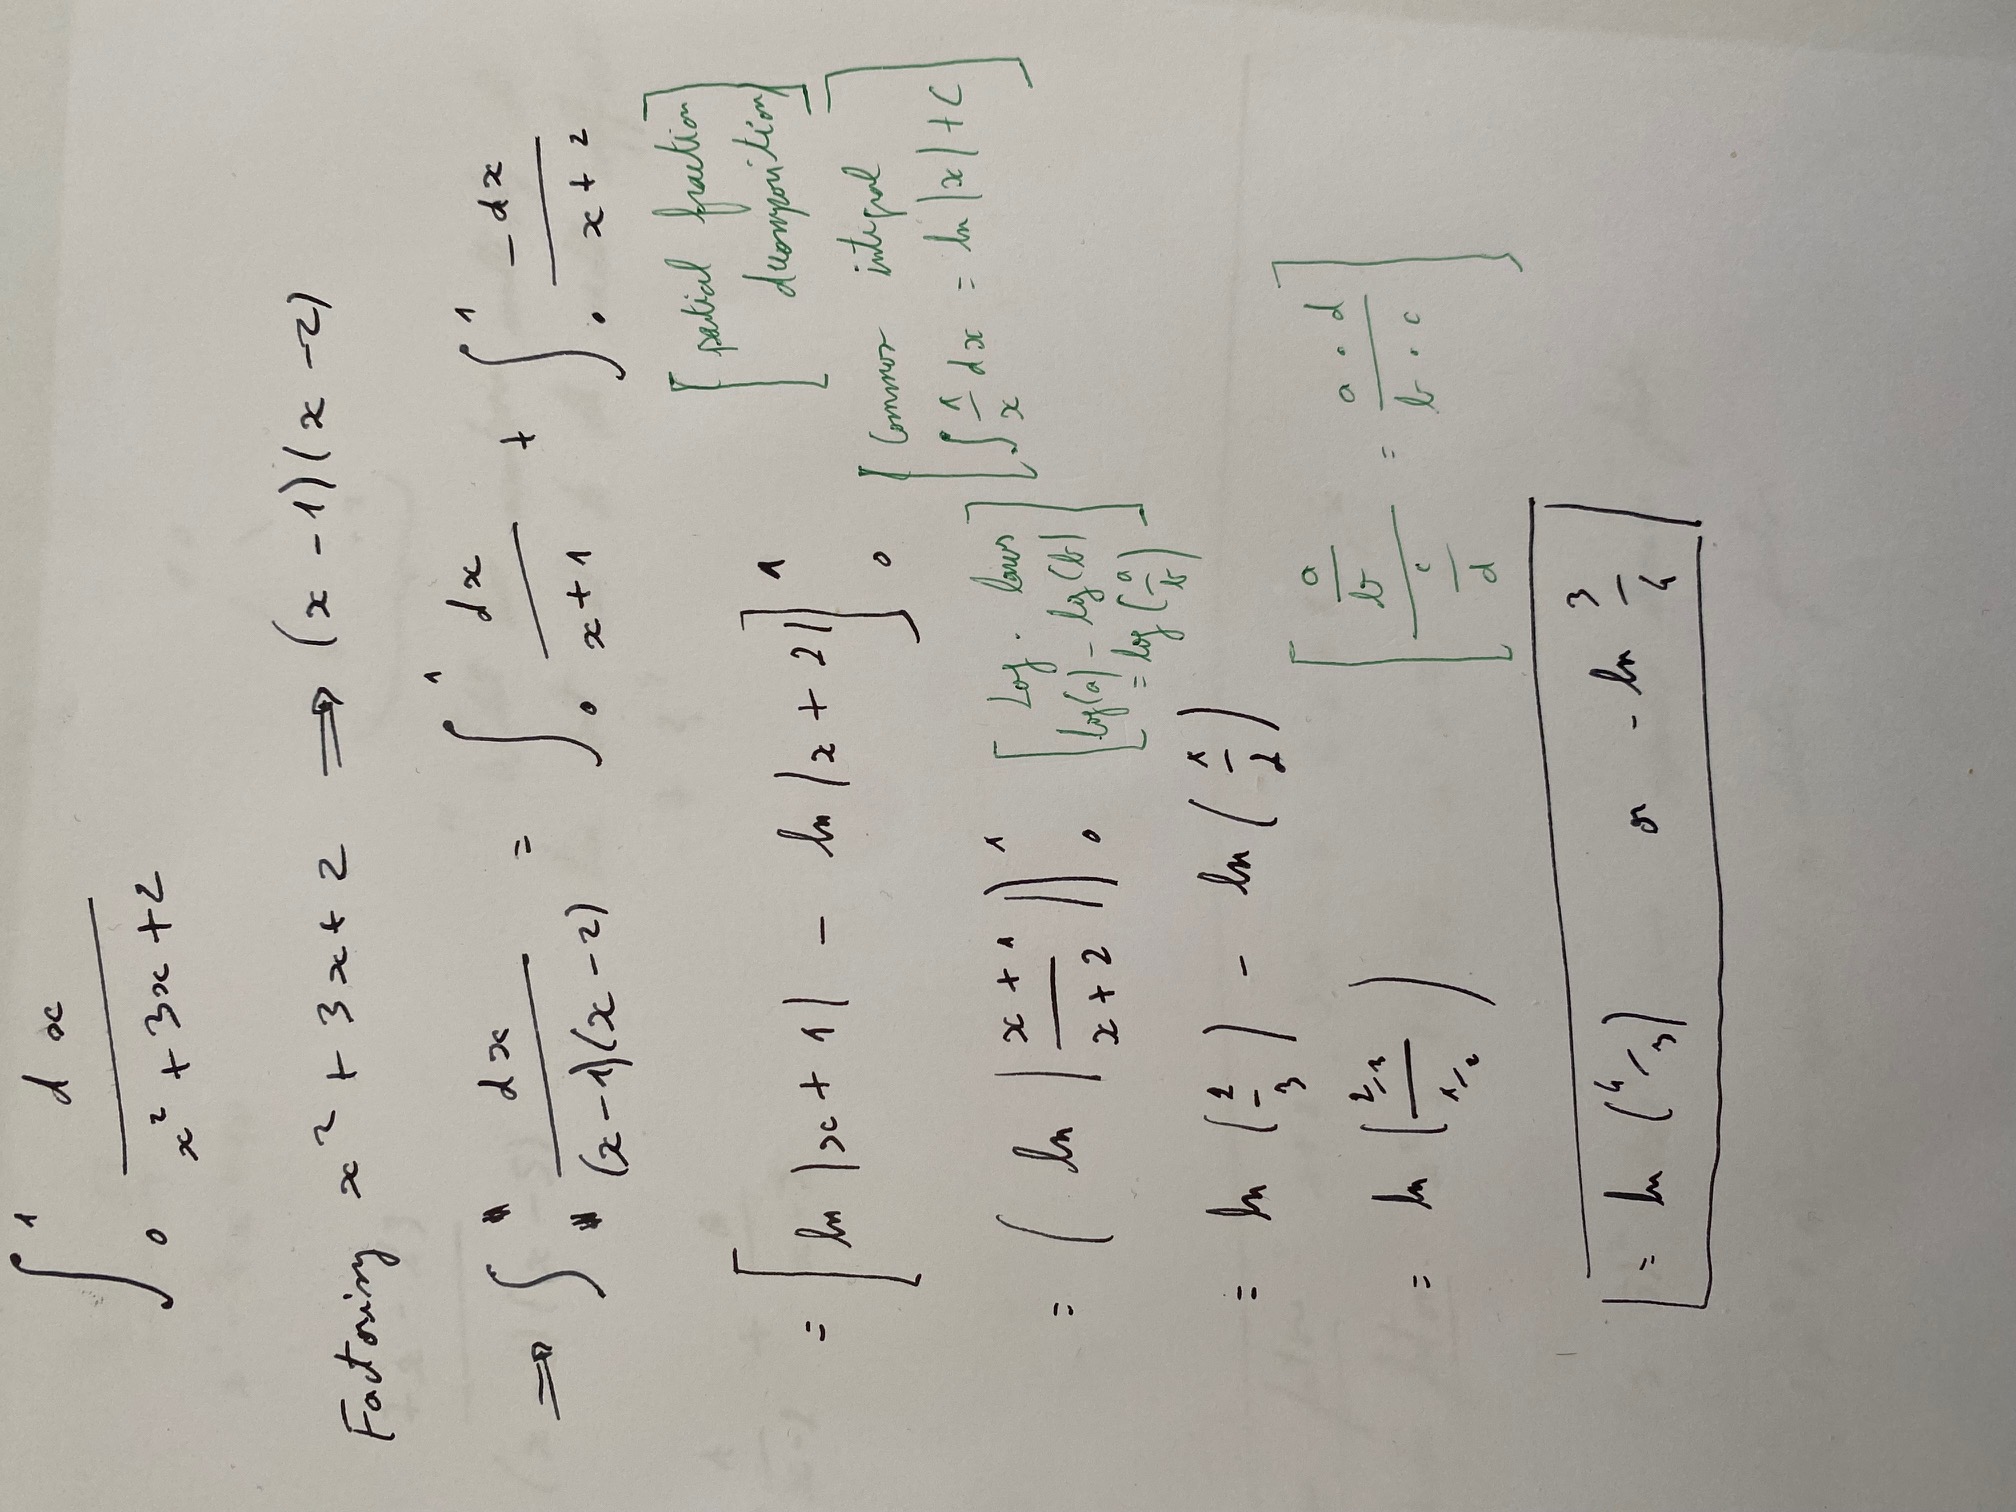 ∫₀¹ dx / (x² + 3x + 2)
Factoring x² + 3x + 2 ⟹ (x - 1)(x - 2)
⟹ ∫ dx / ((x - 1)(x - 2)) = ∫₀¹ dx / (x + 1) + ∫₀¹ -dx / (x + 2)
[partial fraction
decomposition]
= [ln |x + 1| - ln |x + 2|]₀¹
[Common integral
∫ 1/x dx = ln |x| + C]
= (ln |(x + 1) / (x + 2)|)₀¹
[Log. laws
log(a) - log(b)
= log(a/b)]
= ln (2/3) - ln (1/2)
= ln ((2/3) / (1/2))
[(a/b) / (c/d) = (a · d) / (b · c)]
= ln (4/3) or - ln 3/4